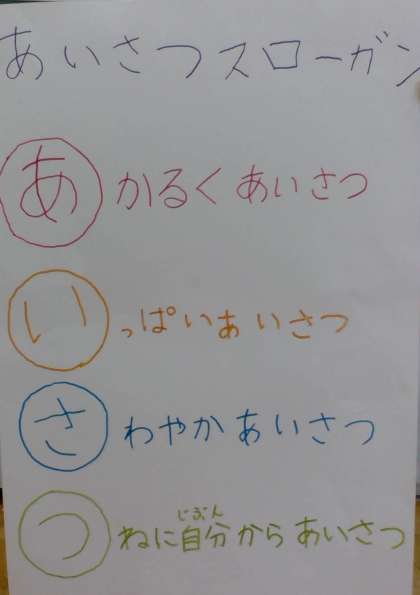 あいさつスローガン
あかるくあいさつ
いっぱいあいさつ
さわやかあいさつ
じぶん
つねに自分からあいさつ